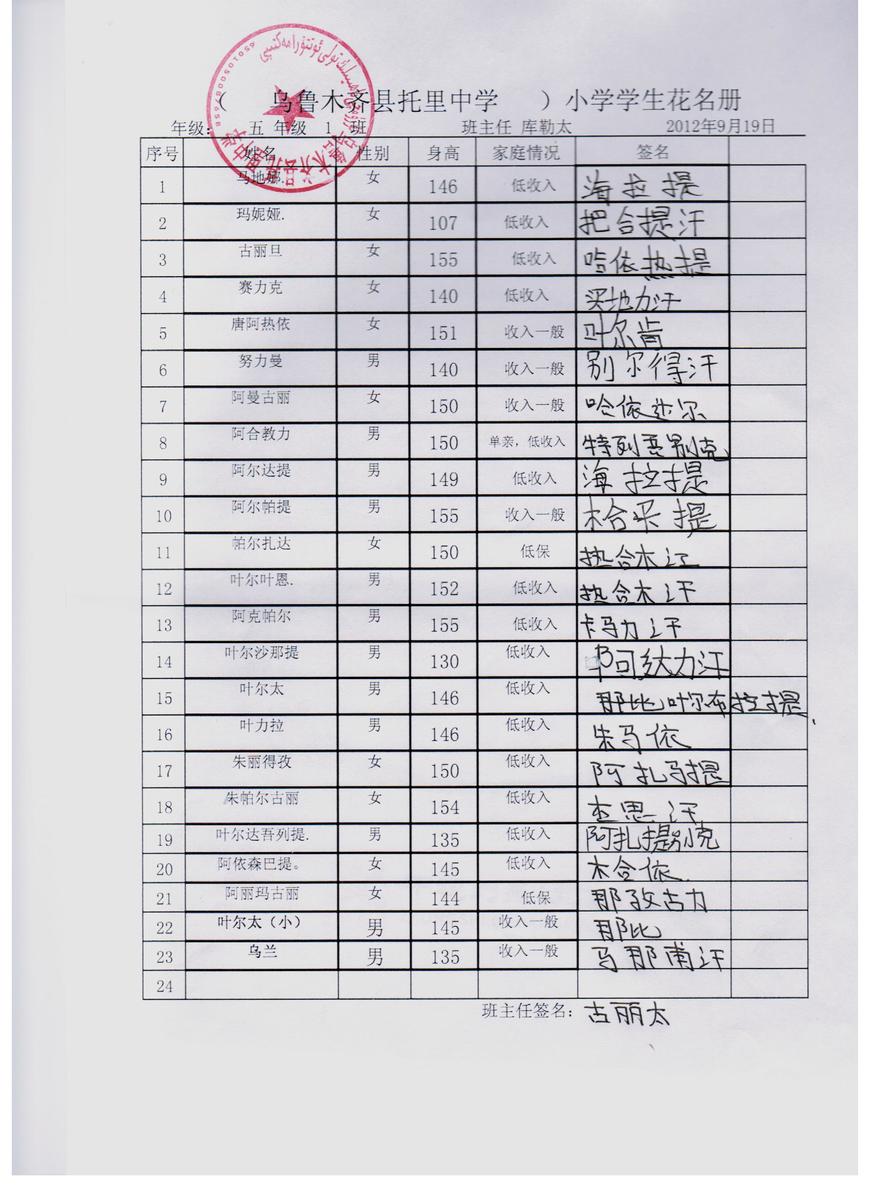 ( 乌鲁木齐县托里中学 ) 小学学生花名册
年级: 五 年级 1 班 班主任 库勒太 2012年9月19日
序号 姓名 性别 身高 家庭情况 签名
1 马地娜. 女 146 低收入 海拉提
2 玛妮娅. 女 107 低收入 把合提汗
3 古丽旦 女 155 低收入 哈依热提
4 赛力克 女 140 低收入 买地力汗
5 唐阿热依 女 151 收入一般 叶尔肯
6 努力曼 男 140 收入一般 别尔得汗
7 阿曼古丽 女 150 收入一般 哈依达尔
8 阿合教力 男 150 单亲，低收入 特列吾别克
9 阿尔达提 男 149 低收入 海拉提
10 阿尔帕提 男 155 收入一般 木合采提
11 帕尔扎达 女 150 低保 热合木江
12 叶尔叶恩. 男 152 低收入 热合木汗
13 阿克帕尔 男 155 低收入 卡马力汗
14 叶尔沙那提 男 130 低收入
15 叶尔太 男 146 低收入 那比叶尔布拉提.
16 叶力拉 男 146 低收入 朱马依
17 朱丽得孜 女 150 低收入 阿扎马提
18 朱帕尔古丽 女 154 低收入
19 叶尔达吾列提. 男 135 低收入 阿扎提别克
20 阿依森巴提。 女 145 低收入 木合依.
21 阿丽玛古丽 女 144 低保 那孜古力
22 叶尔太（小） 男 145 收入一般 那比
23 乌兰 男 135 收入一般 马那甫汗
24
班主任签名: 古丽太